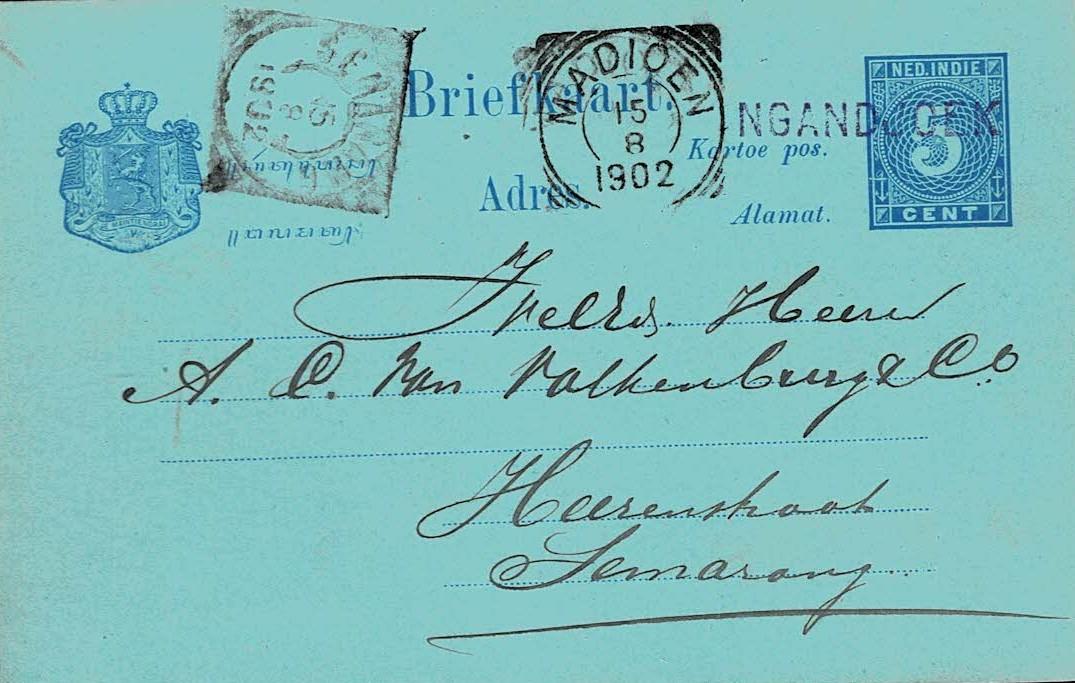 NED. INDIE
5
CENT
NGANDJOEK
MADIOEN
15
8
1902
SEMARANG
15
8
1902
Briefkaart.
Kartoe pos.
Adres.
Alamat.
Heeren
A. C. Van Valkenburg & Co
Heerenstraat
Semarang